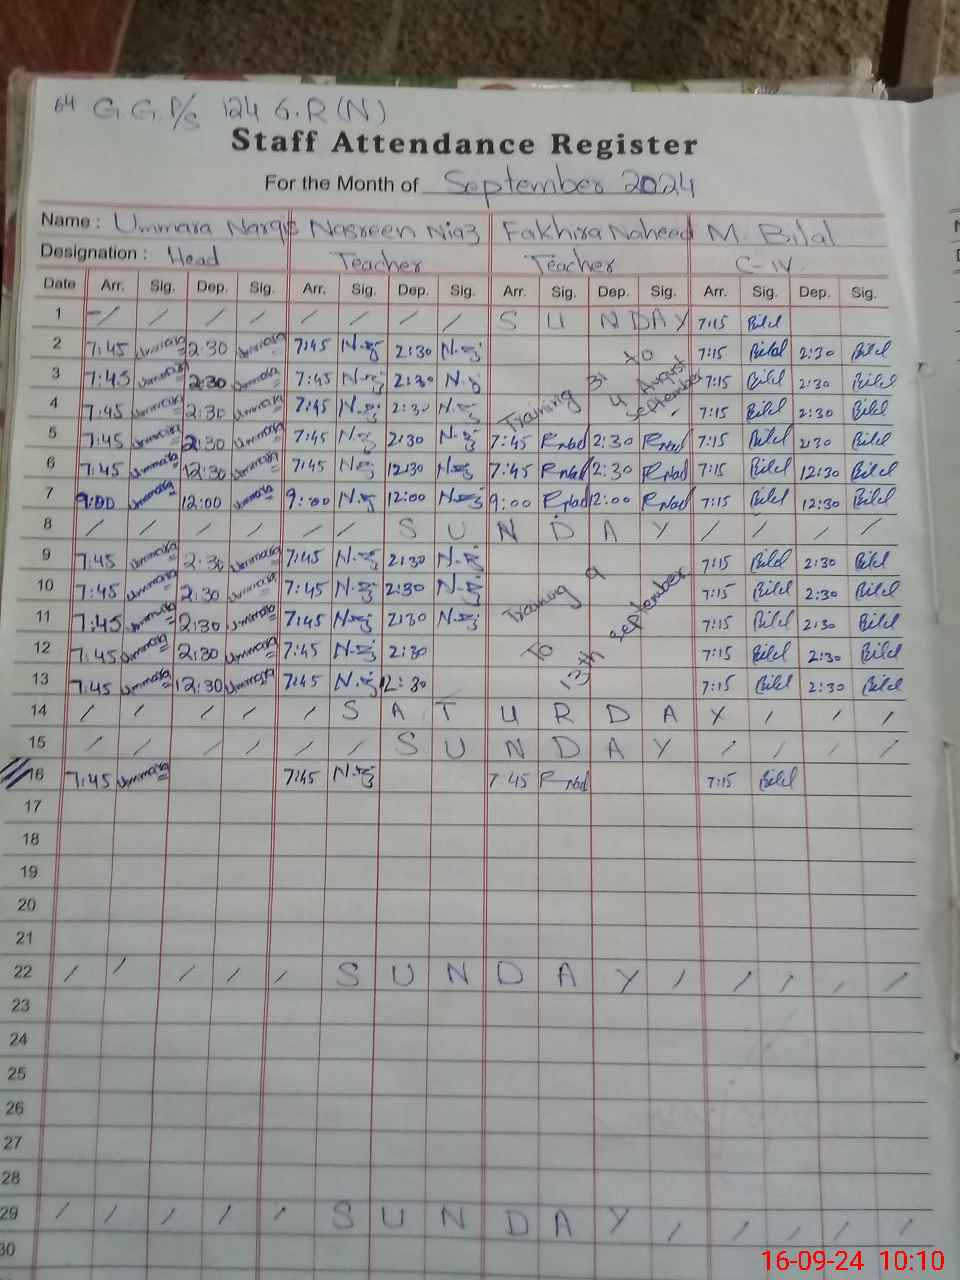 64 G G.P/S 124 G.R(N)
Staff Attendance Register
For the Month of September 2024
Name : Ummara Nargis Nasreen Niaz Fakhira Naheed M. Bilal
Designation : Head Teacher Teacher C-IV.
Date Arr. Sig. Dep. Sig. Arr. Sig. Dep. Sig. Arr. Sig. Dep. Sig. Arr. Sig. Dep. Sig.
1 / / / / / / / / S U N D A Y 7:15 Bilal
2 7:45 Ummara 2:30 Ummara 7:45 N.z 2:30 N.z 7:15 Bilal 2:30 Bilal
3 7:45 Ummara 2:30 Ummara 7:45 N.z 2:30 N.z 7:15 Bilal 2:30 Bilal
4 7:45 Ummara 2:30 Ummara 7:45 N.z 2:30 N.z 7:15 Bilal 2:30 Bilal
Training 31 August to 4 September
5 7:45 Ummara 2:30 Ummara 7:45 N.z 2:30 N.z 7:45 2:30 7:15 Bilal 2:30 Bilal
6 7:45 Ummara 12:30 Ummara 7:45 N.z 12:30 N.z 7:45 2:30 7:15 Bilal 12:30 Bilal
7 9:00 Ummara 12:00 Ummara 9:00 N.z 12:00 N.z 9:00 12:00 7:15 Bilal 12:30 Bilal
8 / / / / / / S U N D A Y / / / /
9 7:45 Ummara 2:30 Ummara 7:45 N.z 2:30 N.z 7:15 Bilal 2:30 Bilal
10 7:45 Ummara 2:30 Ummara 7:45 N.z 2:30 N.z 7:15 Bilal 2:30 Bilal
11 7:45 Ummara 2:30 Ummara 7:45 N.z 2:30 N.z 7:15 Bilal 2:30 Bilal
12 7:45 Ummara 2:30 Ummara 7:45 N.z 2:30 7:15 Bilal 2:30 Bilal
13 7:45 Ummara 12:30 Ummara 7:45 N.z 12:30 7:15 Bilal 2:30 Bilal
Training 9 To 13th september
14 / / / / / S A T U R D A Y / / /
15 / / / / / / S U N D A Y / / / /
16 7:45 Ummara 7:45 N.z 7:45 7:15 Bilal
17
18
19
20
21
22 / / / / / S U N D A Y / / / / /
23
24
25
26
27
28
29 / / / / / S U N D A Y / / / / /
30
16-09-24 10:10